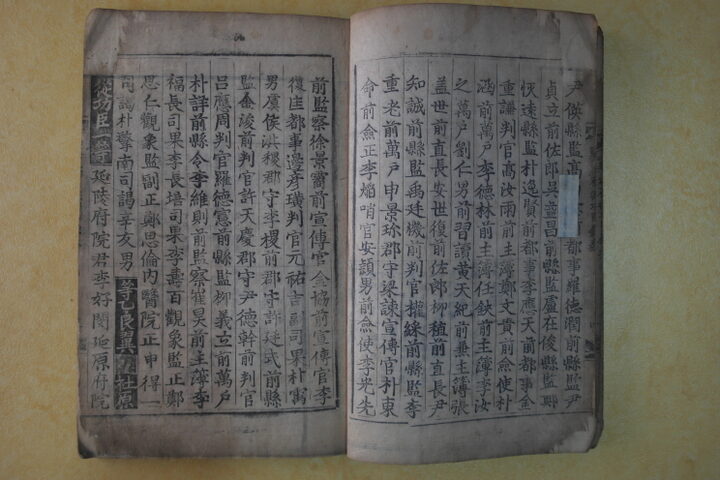 尹俁縣監高 都事羅德潤前縣監尹
貞立前佐郎吳益昌前縣監盧在俊縣監鄭
忱遠縣監朴逸賢前都事李應天前都事金
重謙判官高汝雨前主簿鄭文貫前僉使朴
涵前萬戶李德林前主簿任鈇前主簿李汝
之萬戶劉仁男前習讀黃天紀前兼主簿張
蓋世前直長安世復前佐郎柳楨前直長尹
知誠前縣監禹廷機前判官權綵前縣監李
重老前萬戶申景珎郡守梁諫宣傳官朴東
命前僉正李焰哨官安額男前僉使李光先
前監察徐景霌前宣傳官金協前宣傳官李
復匡都事邊彥璜判官元祐吉副司果朴寗
男虞侯洪稷郡守李㮨前郡守許廷武前縣
監金浚前判官許天慶郡守尹德幹前判官
呂應周判官羅德憲前縣監柳義立前萬戶
朴詳前縣令李維則前監察崔昊前主簿李
福長司果李長培司果李壽百觀象監正鄭
思仁觀象監副正鄭思倫內醫院正申得一
司謁朴擎南司謁辛友男 等乙良翼社原
從功臣一等 延陵府院君李好閔延原府院